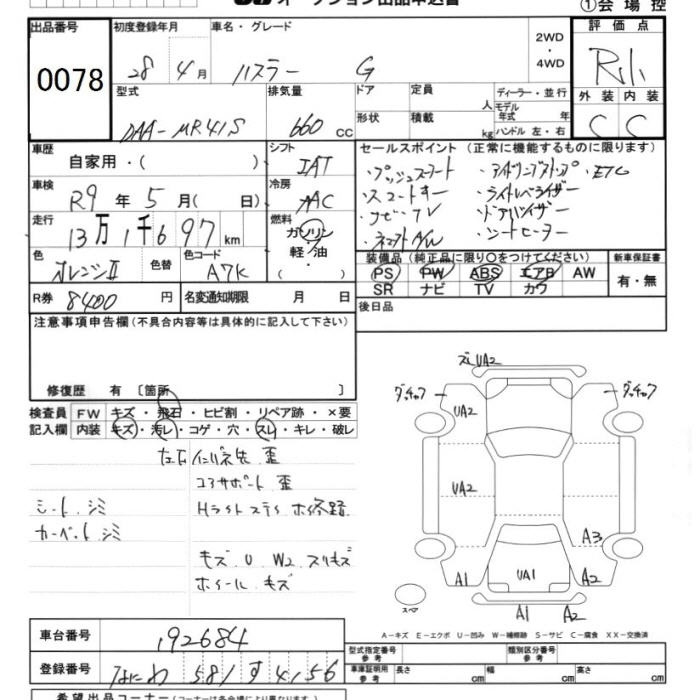 オークション出品申込書
①会場控
出品番号 初度登録年月 車名・グレード 2WD ・ 4WD 評価点
0078 28年 4月 ハスラー G R小
型式 排気量 ドア 定員 人 ディーラー・並行 外装 内装
DAA-MR41S 660 CC 形状 積載 kg モデル年式 年 ハンドル 左・右 C C
車歴 自家用・( ) シフト IAT セールスポイント (正常に機能するものに限ります)
車検 R9年 5月( 日) 冷房 AAC ・プッシュスタート ・アイドリングストップ ・ETC
・スマートキー ・ライトレベライザー
走行 13万1千697km 燃料 ガソリン・軽・油・( ) ・ナビ・TV ・ドアバイザー
・シートヒーター
色 オレンジII 色替 色コード A7K 装備品(純正品に限り○をつけてください) 新車保証書
PS PW ABS エアB AW 有・無
SR ナビ TV カワ
R券 8400円 名変通知期限 月 日 後日品
注意事項申告欄(不具合内容等は具体的に記入して下さい)
修復歴 有〔箇所 〕
検査員記入欄 FW キズ・飛石・ヒビ割・リペア跡・×要
内装 キズ・汚レ・コゲ・穴・スレ・キレ・破レ
左右インパネ先 歪
コアサポート 歪
シート シミ Hライトステー 歪修路
カーペット シミ
キズ U W2 スリキズ
ホイール キズ
ズレ UA2
ダッチャク ダッチャク
UA2
UA2
A3
A1 UA1 A2
スペア A1 A2
A-キズ E-エクボ U-凹み W-補修跡 S-サビ C-腐食 XX-交換済
車台番号 192684
型式指定番号 参考 類別区分番号 参考
登録番号 なにわ 581 す 4156 車庫証明用 参考 長さ cm 幅 cm 高さ cm
希望出品コーナー